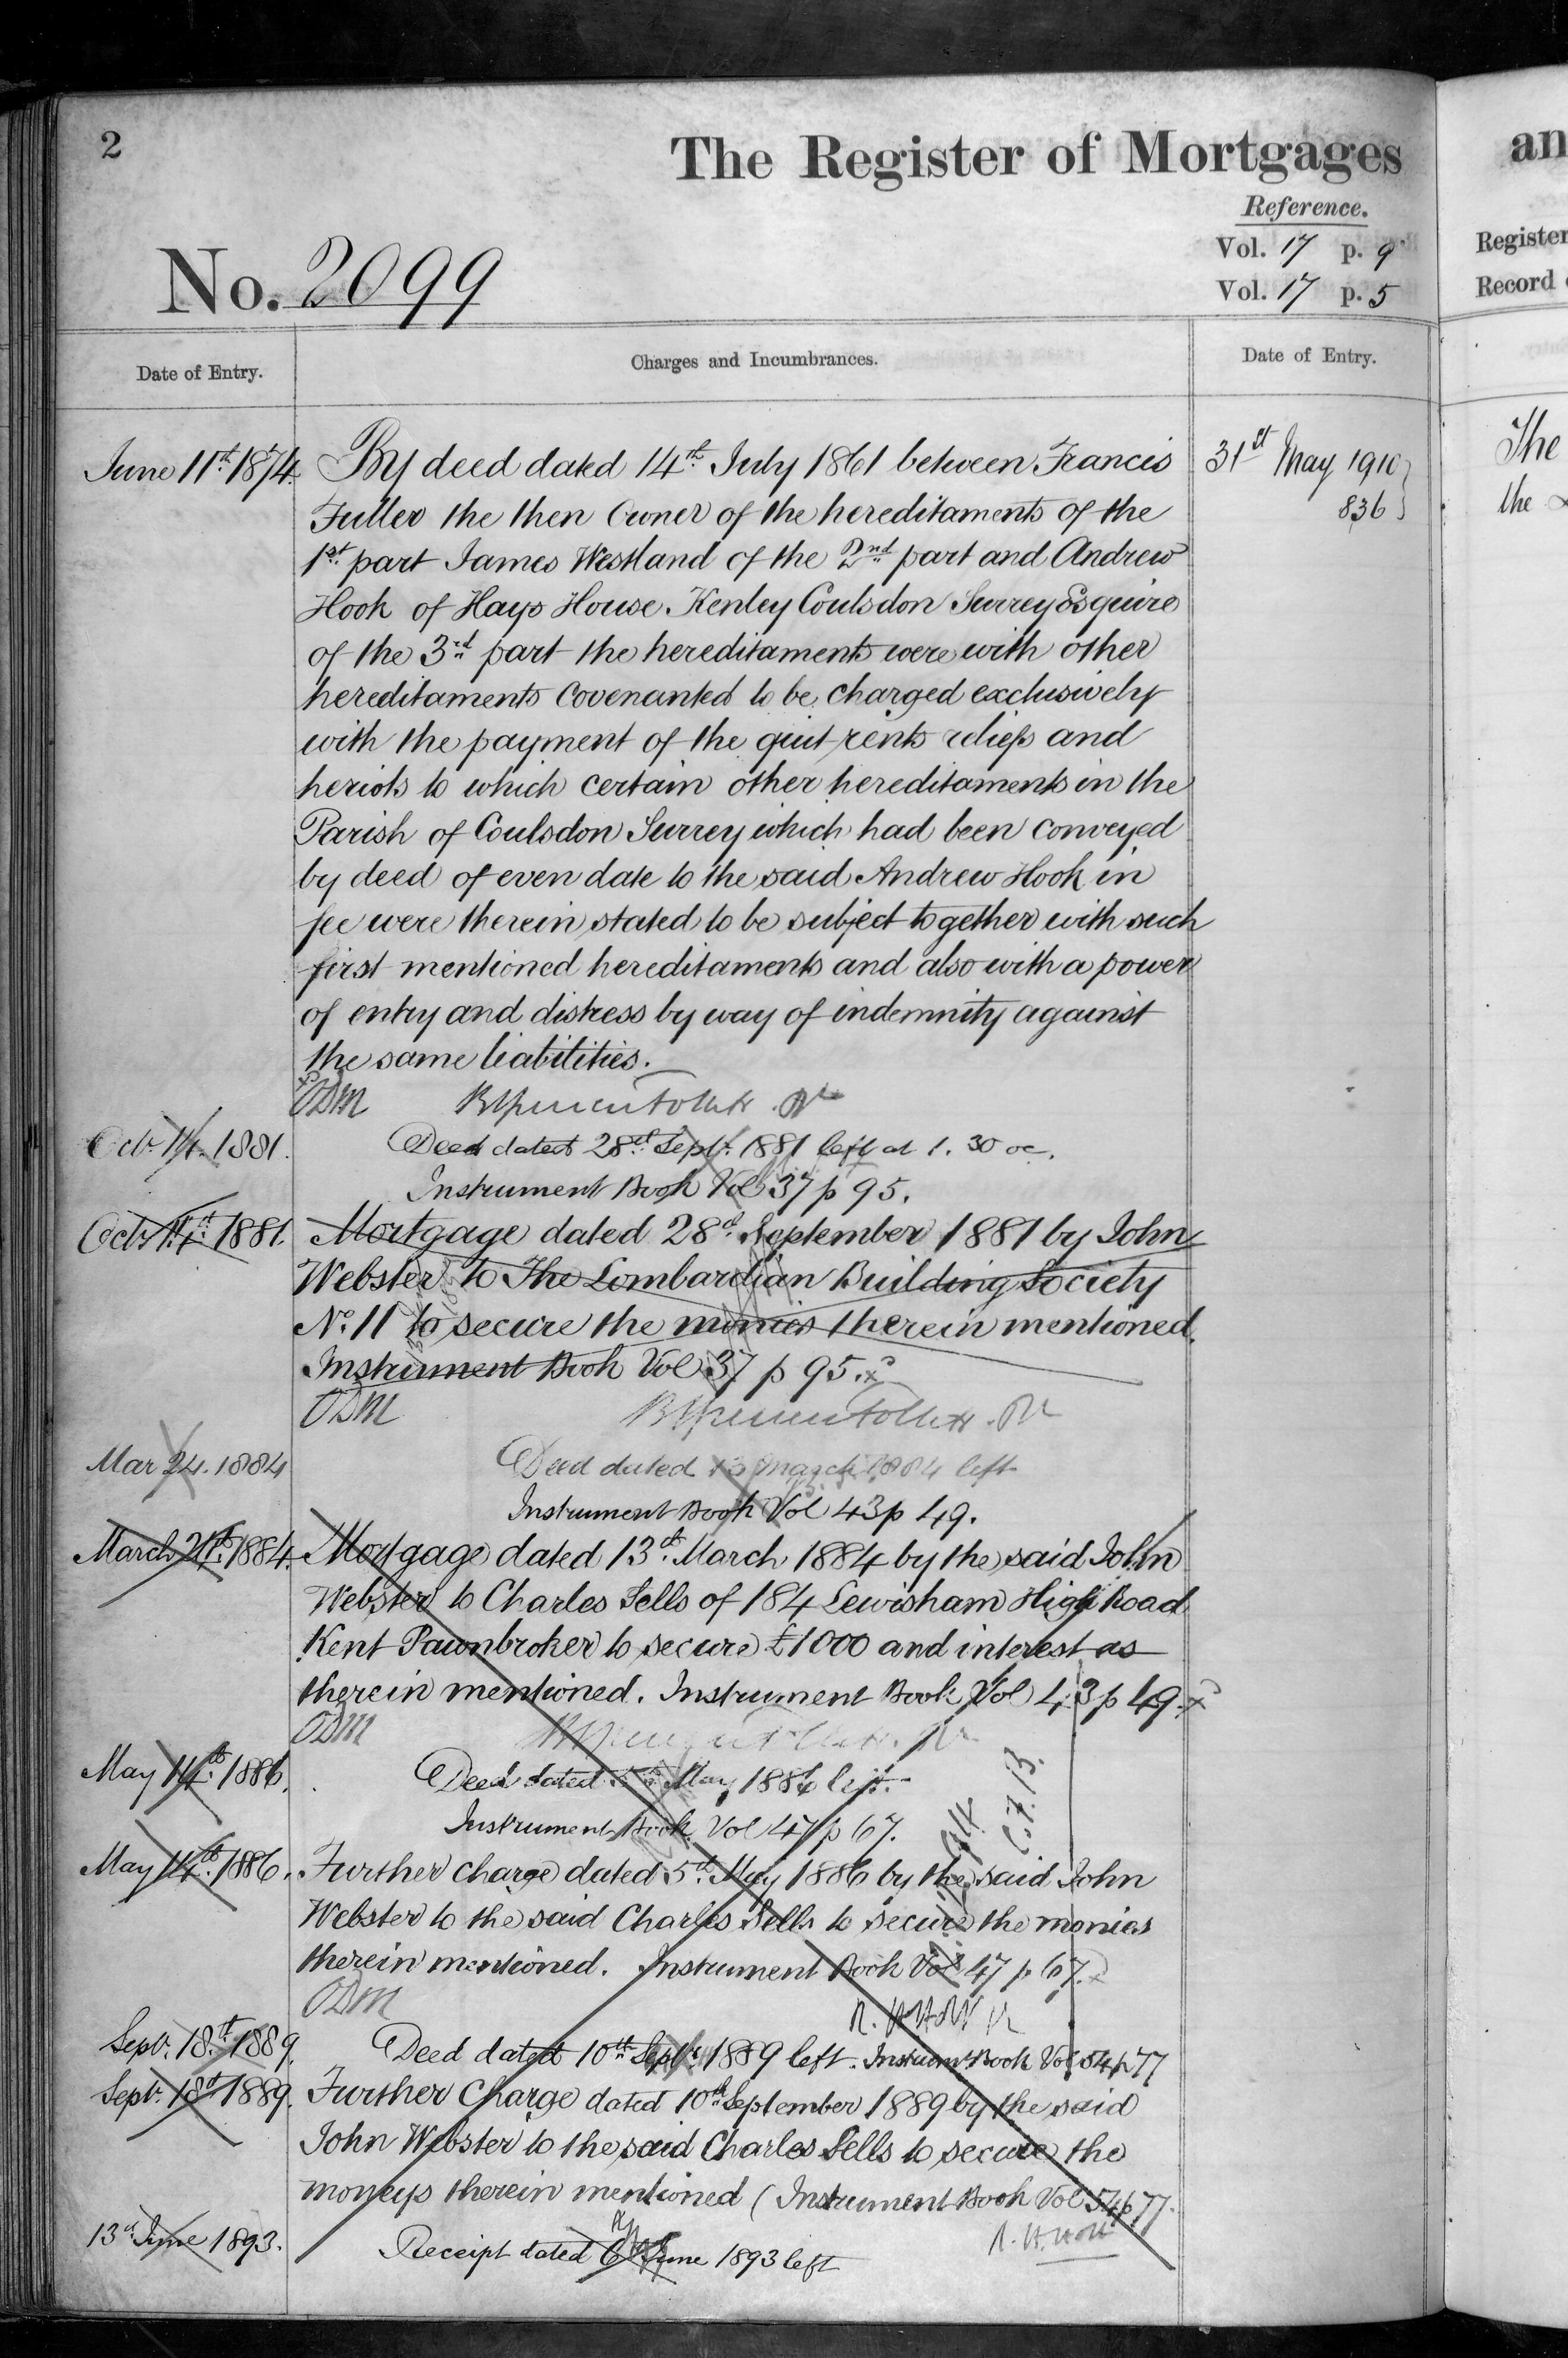 2
The Register of Mortgages
Reference.
Vol. 17 p. 9
Vol. 17 p. 5
No. 2099
Date of Entry.
Charges and Incumbrances.
Date of Entry.
June 11th 1874. By deed dated 14th July 1861 between Francis
Fuller the then Owner of the hereditaments of the
1st part James Westland of the 2nd part and Andrew
Hook of Hays House Kenley Coulsdon Surrey Esquire
of the 3rd part the hereditaments were with other
hereditaments covenanted to be charged exclusively
with the payment of the quit rents reliefs and
heriots to which certain other hereditaments in the
Parish of Coulsdon Surrey which had been conveyed
by deed of even date to the said Andrew Hook in
fee were therein stated to be subject together with such
first mentioned hereditaments and also with a power
of entry and distress by way of indemnity against
the same liabilities.
ODM
Oct. 14. 1881. Deed dated 28th Sept. 1881 left at 1.30 oc.
Instrument Book Vol 37 p 95.
Octr 14th 1881. Mortgage dated 28th September 1881 by John
Webster to The Lombardian Building Society
No. 11 to secure the monies therein mentioned.
Instrument Book Vol 37 p 95.
ODM
Mar 24. 1884 Deed dated 13 March 1884 left
Instrument Book Vol 43 p 49.
March 24th 1884. Mortgage dated 13th March 1884 by the said John
Webster to Charles Sells of 184 Lewisham High Road
Kent Pawnbroker to secure £1000 and interest as
therein mentioned. Instrument Book Vol 43 p 49.
ODM
May 14th 1886. Deed dated 5th May 1886 left.
Instrument Book Vol 47 p 67.
May 14th 1886. Further charge dated 5th May 1886 by the said John
Webster to the said Charles Sells to secure the monies
therein mentioned. Instrument Book Vol 47 p 67.
ODM
Sept. 18th 1889. Deed dated 10th Septr 1889 left. Instrumt Book Vol 54 p 77
Sept. 18th 1889. Further Charge dated 10th September 1889 by the said
John Webster to the said Charles Sells to secure the
moneys therein mentioned (Instrument Book Vol 54 p 77.
R. H. Holt
13th June 1893. Receipt dated 6th June 1893 left
31st May 1910
836
an
Register
Record
The
the